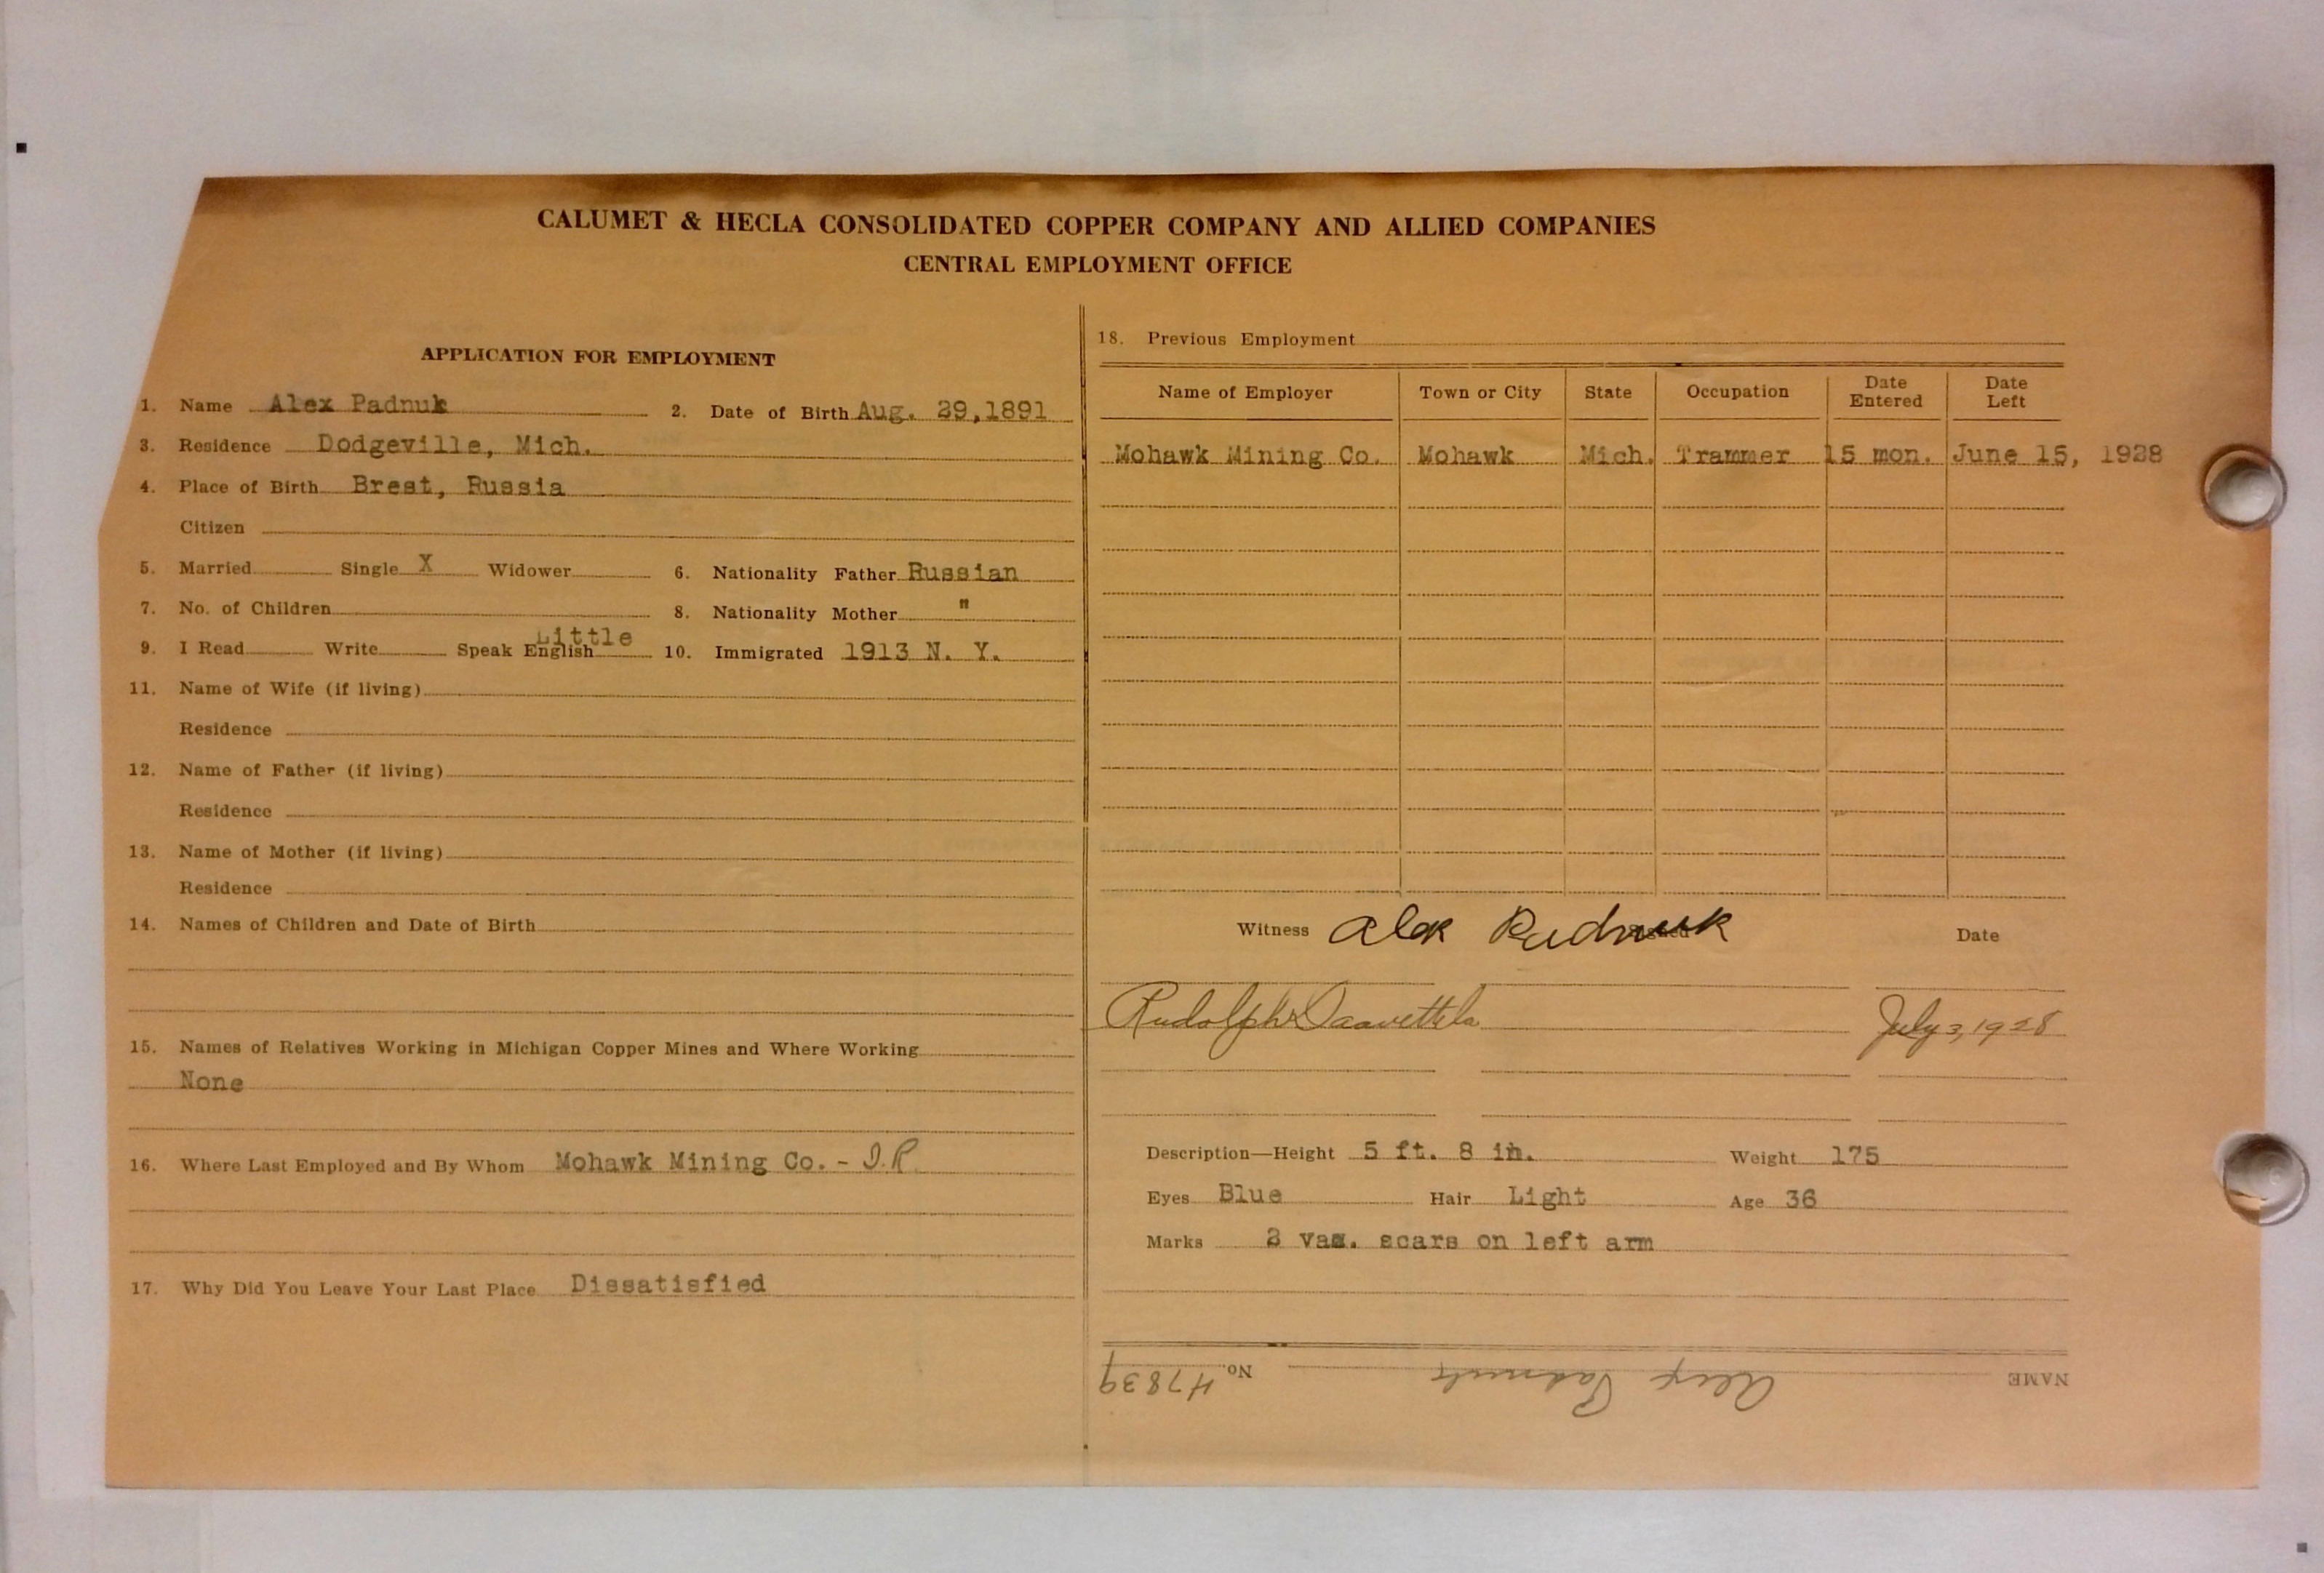 CALUMET & HECLA CONSOLIDATED COPPER COMPANY AND ALLIED COMPANIES
CENTRAL EMPLOYMENT OFFICE
APPLICATION FOR EMPLOYMENT
1. Name Alex Padnuk 2. Date of Birth Aug. 29,1891
3. Residence Dodgeville, Mich.
4. Place of Birth Brest, Russia
Citizen
5. Married Single X Widower 6. Nationality Father Russian
7. No. of Children 8. Nationality Mother "
9. I Read Write Speak English Little 10. Immigrated 1913 N. Y.
11. Name of Wife (if living)
Residence
12. Name of Father (if living)
Residence
13. Name of Mother (if living)
Residence
14. Names of Children and Date of Birth
15. Names of Relatives Working in Michigan Copper Mines and Where Working
None
16. Where Last Employed and By Whom Mohawk Mining Co. - J.R.
17. Why Did You Leave Your Last Place Dissatisfied
18. Previous Employment
Name of Employer Town or City State Occupation Date Entered Date Left
Mohawk Mining Co. Mohawk Mich. Trammer 15 mon. June 15, 1928
Witness Alek Rudnuk Signed Date
Rudolph July 3, 1928
Description—Height 5 ft. 8 in. Weight 175
Eyes Blue Hair Light Age 36
Marks 2 vac. scars on left arm
NAME Alex Padnuk No. H7839